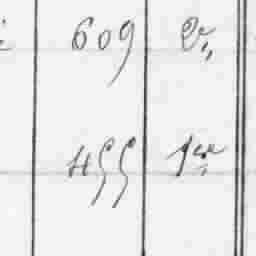 609 2e
455 1er